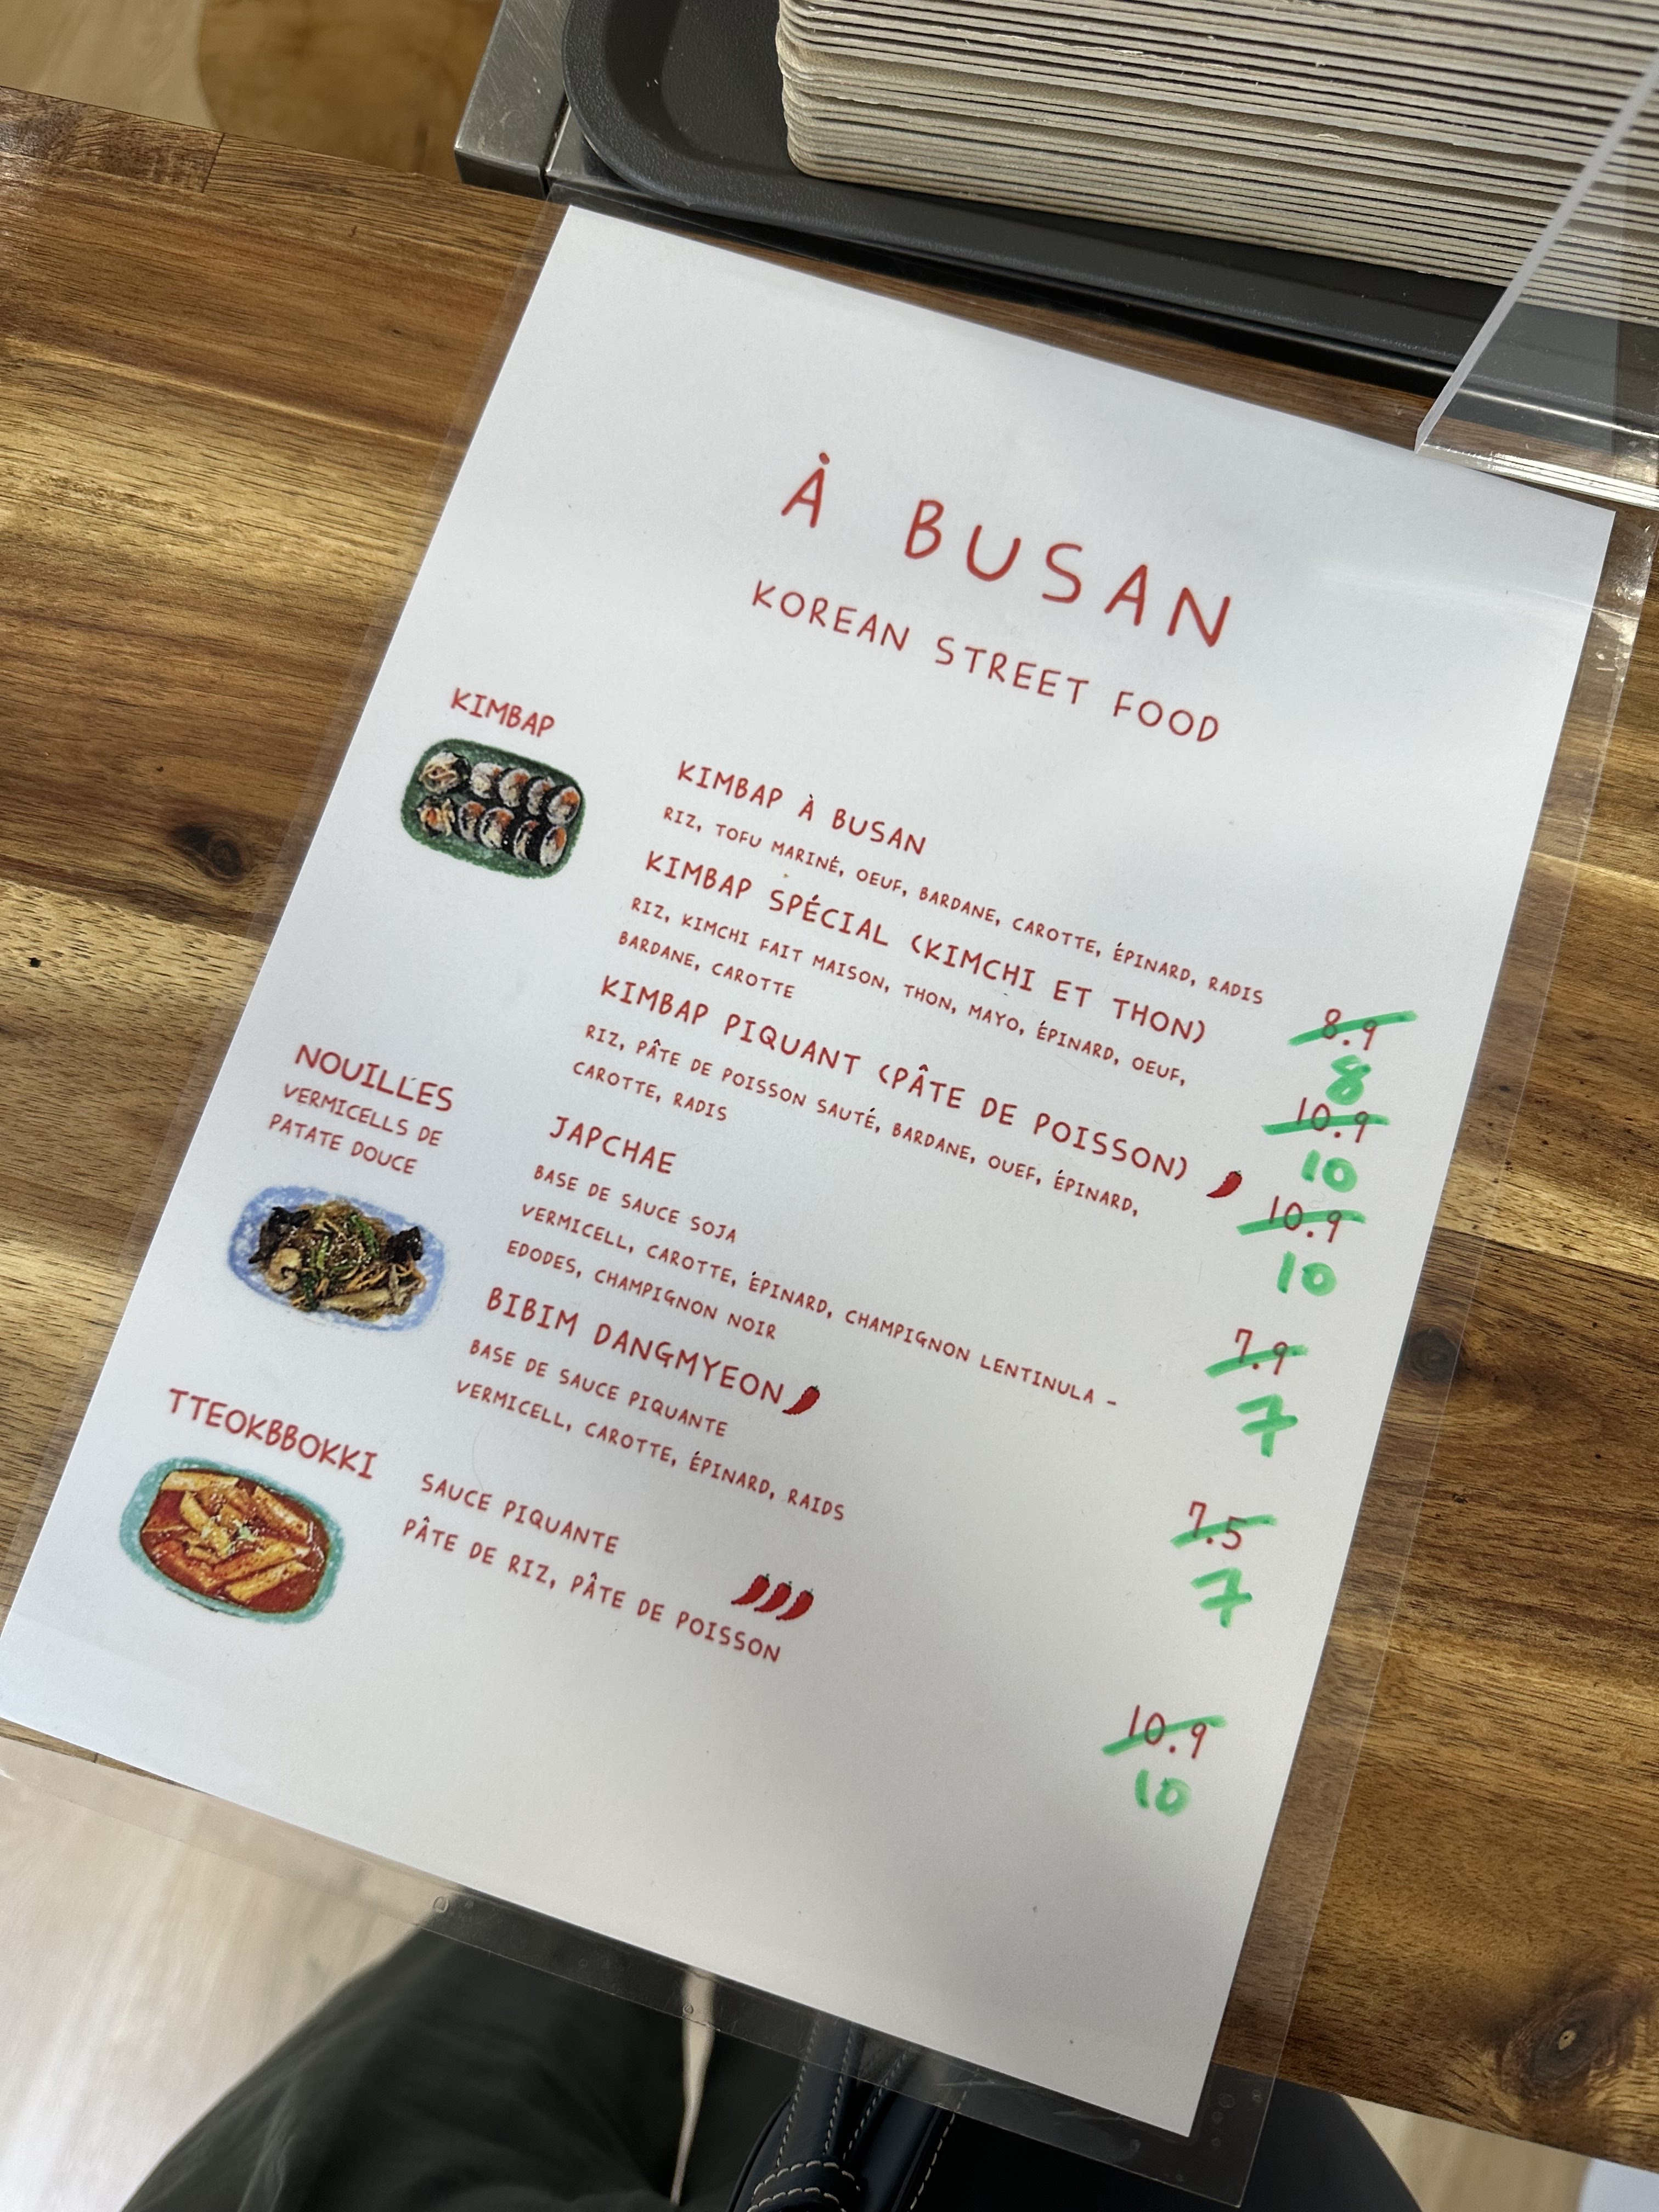 À BUSAN
KOREAN STREET FOOD
KIMBAP
KIMBAP À BUSAN
RIZ, TOFU MARINÉ, OEUF, BARDANE, CAROTTE, ÉPINARD, RADIS
8.9
8
KIMBAP SPÉCIAL (KIMCHI ET THON)
RIZ, KIMCHI FAIT MAISON, THON, MAYO, ÉPINARD, OEUF,
BARDANE, CAROTTE
10.9
10
KIMBAP PIQUANT (PÂTE DE POISSON)
RIZ, PÂTE DE POISSON SAUTÉ, BARDANE, OUEF, ÉPINARD,
CAROTTE, RADIS
10.9
10
NOUILLES
VERMICELLS DE
PATATE DOUCE
JAPCHAE
BASE DE SAUCE SOJA
VERMICELL, CAROTTE, ÉPINARD, CHAMPIGNON LENTINULA -
EDODES, CHAMPIGNON NOIR
7.9
7
BIBIM DANGMYEON
BASE DE SAUCE PIQUANTE
VERMICELL, CAROTTE, ÉPINARD, RAIDS
7.5
7
TTEOKBBOKKI
SAUCE PIQUANTE
PÂTE DE RIZ, PÂTE DE POISSON
10.9
10